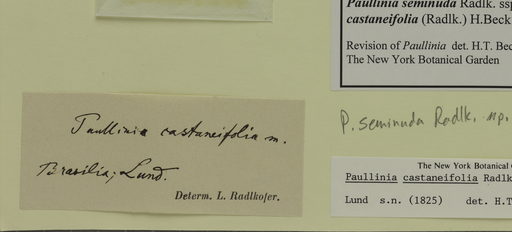 Paullinia seminuda Radlk. ssp
castaneifolia (Radlk.) H.Beck
Revision of Paullinia det. H.T. Bec
The New York Botanical Garden
P. seminuda Radlk. ssp.
Paullinia castaneifolia m.
Brasilia; Lund.
Determ. L. Radlkofer.
The New York Botanical
Paullinia castaneifolia Radlk
Lund s.n. (1825) det. H.T